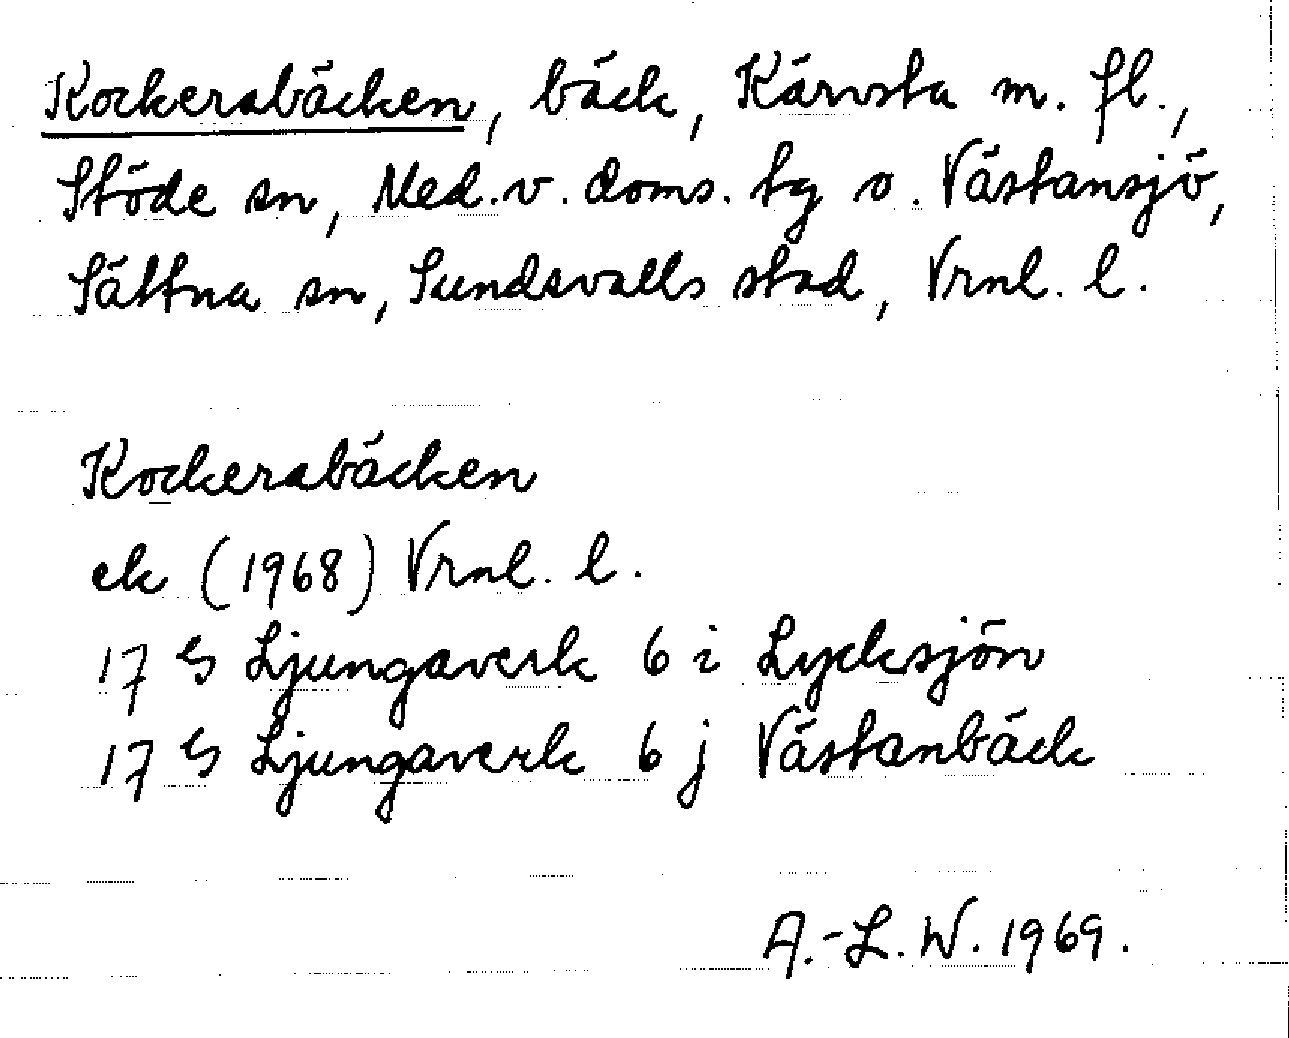 Kockerabäcken, bäck, Kärvsta m. fl.,
Stöde sn, Med. v. doms. tg o. Västansjö,
Sättna sn, Sundsvalls stad, Vrnl. l.
Kockerabäcken
ek (1968) Vrnl. l.
17 G Ljungaverk 6 i Lycksjön
17 G Ljungaverk 6 j Västanbäck
A.-L. W. 1969.